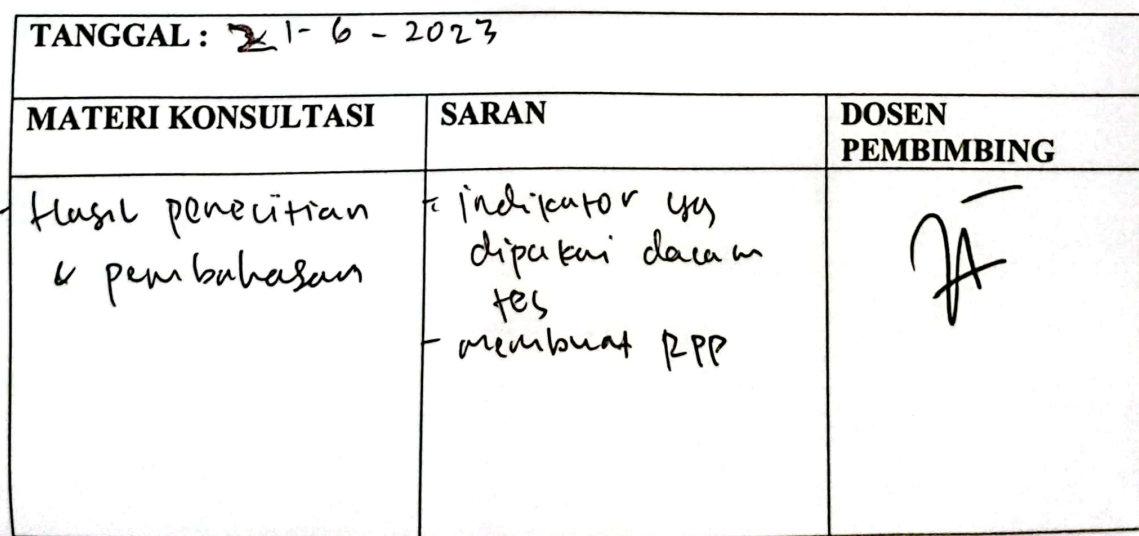 TANGGAL : 21-6-2023
MATERI KONSULTASI
SARAN
DOSEN
PEMBIMBING
- Hasil penelitian
& pembahasan
- indikator yg
dipakai dalam
tes
- membuat RPP